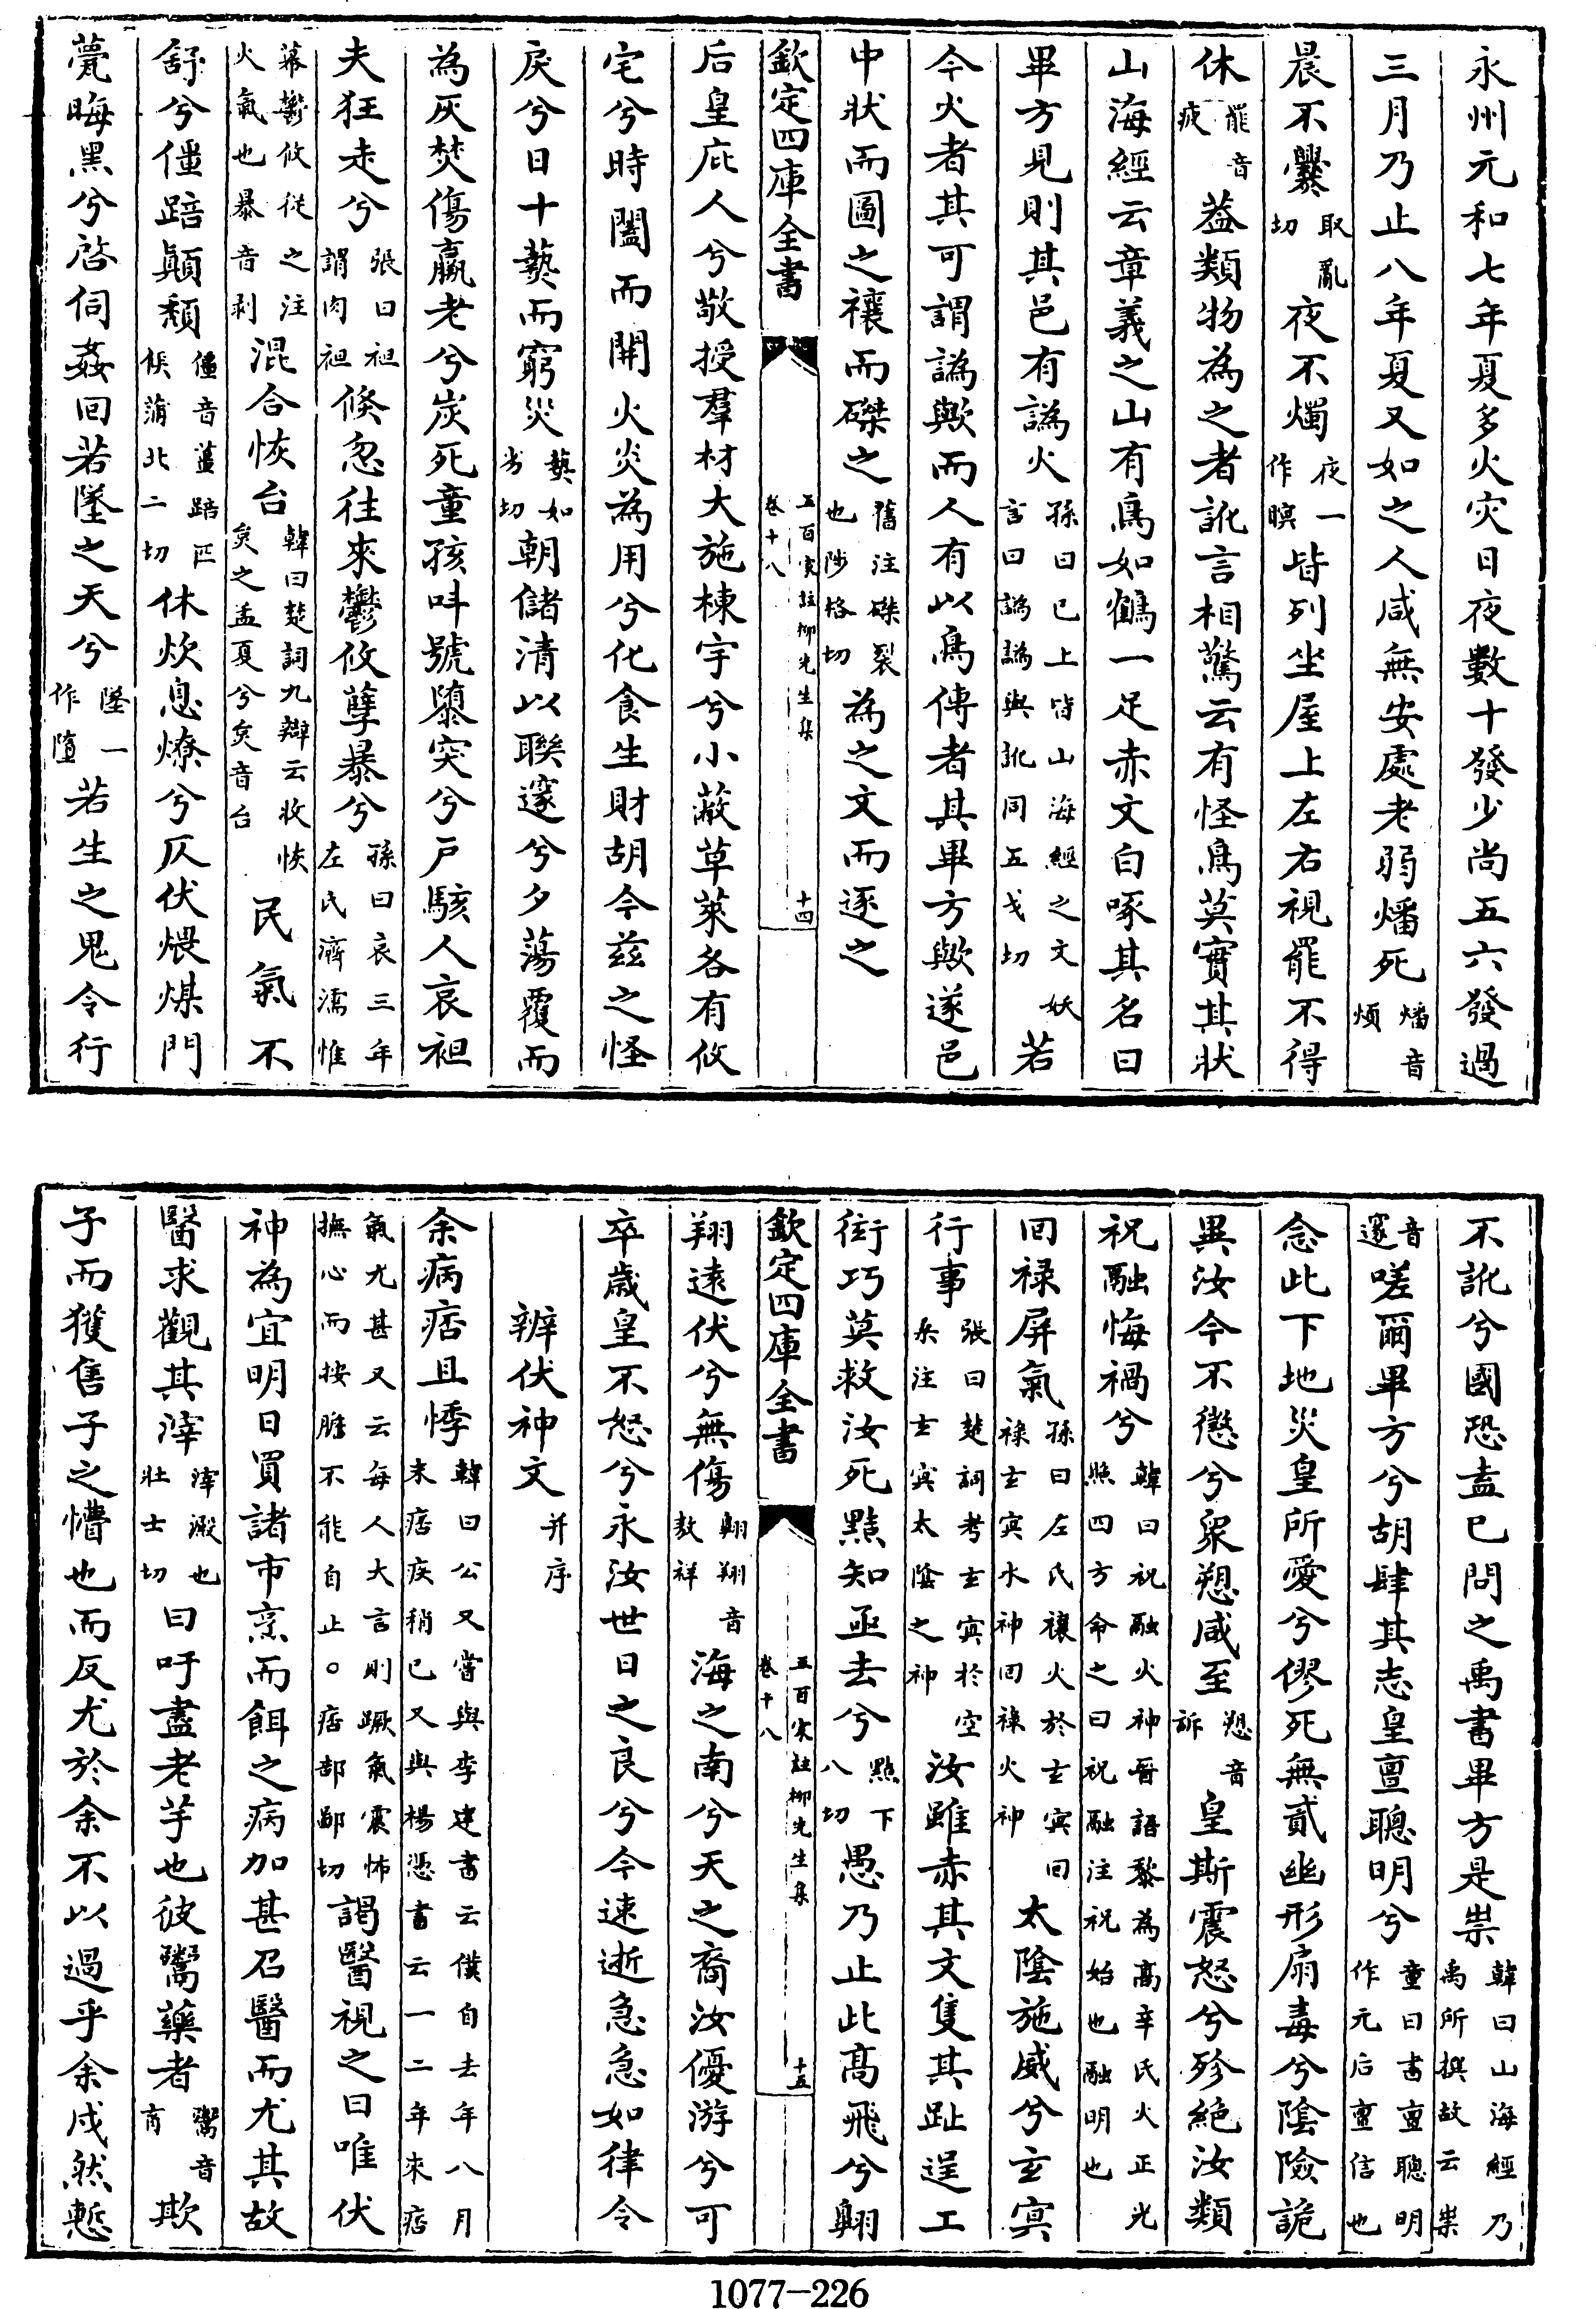 永州元和七年夏多火灾日夜數十發少尚五六發過
三月乃止八年夏又如之人咸無安處老弱燔死燔音煩
晨不爨取亂切夜不燭夜一作暝皆列坐屋上左右視罷不得
休罷音疲葢類物為之者訛言相驚云有怪鳥莫實其狀
山海經云章義之山有鳥如鶴一足赤文白喙其名曰
畢方見則其邑有譌火孫曰已上皆山海經之文妖言曰譌譌與訛同五戈切若
今火者其可謂譌歟而人有以鳥傳者其畢方歟遂邑
中狀而圖之禳而磔之舊注磔裂也陟格切為之文而逐之
欽定四庫全書 五百家註柳先生集卷十八 十四
后皇庇人兮敬授羣材大施棟宇兮小蔽草萊各有攸
宅兮時闔而開火炎為用兮化食生財胡今兹之怪
戾兮日十爇而窮災爇如劣切朝儲清以聯邃兮夕蕩覆而
為灰焚傷羸老兮炭死童孩呌號隳突兮戶駭人哀袒
夫狂走兮張曰袒謂肉袒倏忽往來鬱攸孽暴兮孫曰哀三年左氏濟濡帷
幕鬱攸從之注火氣也暴音剥混合恢台韓曰楚詞九辯云收恢炱之孟夏兮炱音台民氣不
舒兮僵踣顛頽僵音薑踣匹候蒲北二切休炊息燎兮仄伏煨煤門
甍晦黑兮啓伺姦回若墜之天兮墜一作墮若生之鬼令行
不訛兮國恐盍已問之禹書畢方是祟韓曰山海經乃禹所撰故云祟
音邃嗟爾畢方兮胡肆其志皇亶聰明兮童曰書亶聰明作元后亶信也
念此下地災皇所愛兮僇死無貳幽形扇毒兮陰險詭
異汝今不懲兮衆愬咸至愬音訴皇斯震怒兮殄絶汝類
祝融悔禍兮韓曰祝融火神晉語黎為高辛氏火正光照四方命之曰祝融注祝始也融明也
回禄屏氣孫曰左氏禳火於玄冥回禄玄冥水神回禄火神太陰施威兮玄冥
行事張曰楚詞考玄冥於空桑注玄冥太陰之神汝雖赤其文隻其趾逞工
衒巧莫救汝死黠知亟去兮黠下八切愚乃止此髙飛兮翺
欽定四庫全書 五百家註柳先生集卷十八 十五
翔遠伏兮無傷翺翔音敖祥海之南兮天之裔汝優游兮可
卒歳皇不怒兮永汝世日之良兮今速逝急急如律令
辨伏神文并序
余病痞且悸韓曰公又嘗與李建書云僕自去年八月來痞疾稍已又與楊憑書云一二年來痞
氣尤甚又云每人大言則蹶氣震怖撫心而按膽不能自止○痞部鄙切謁醫視之曰唯伏
神為宜明日買諸市烹而餌之病加甚召醫而尤其故
醫求觀其滓滓澱也壯士切曰吁盡老芋也彼鬻藥者鬻音育欺
子而獲售子之懵也而反尤於余不以過乎余戍然慙
1077—226